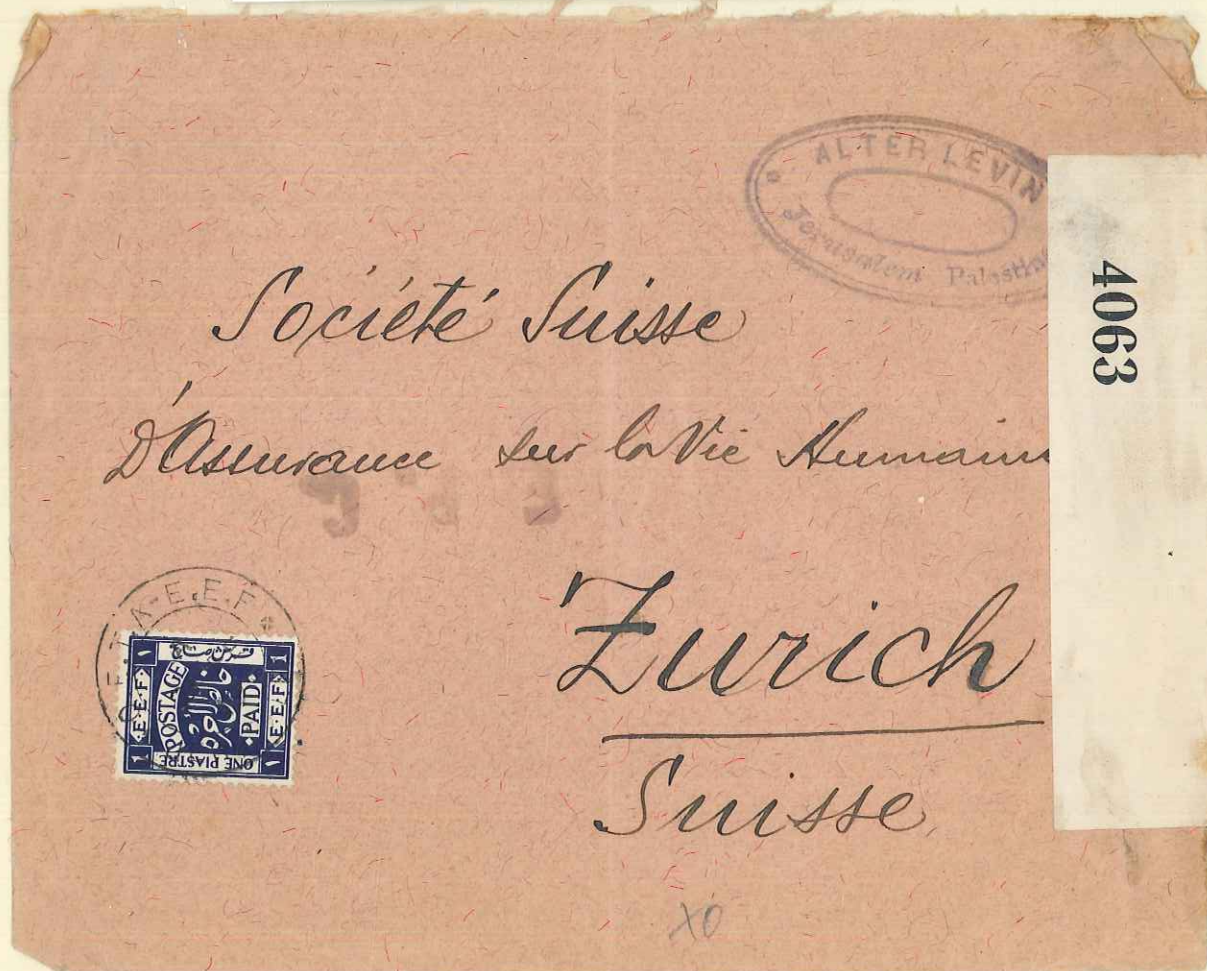 ALTER LEVIN
Jerusalem Palestin
4063
Société Suisse
D'Assurance sur la Vie Humain
Zurich
Suisse
E.E.F
قرش صاغ
POSTAGE
خالص الاجرة
PAID
E.E.F
E.E.F
ONE PIASTRE
1
1
١
١
XO